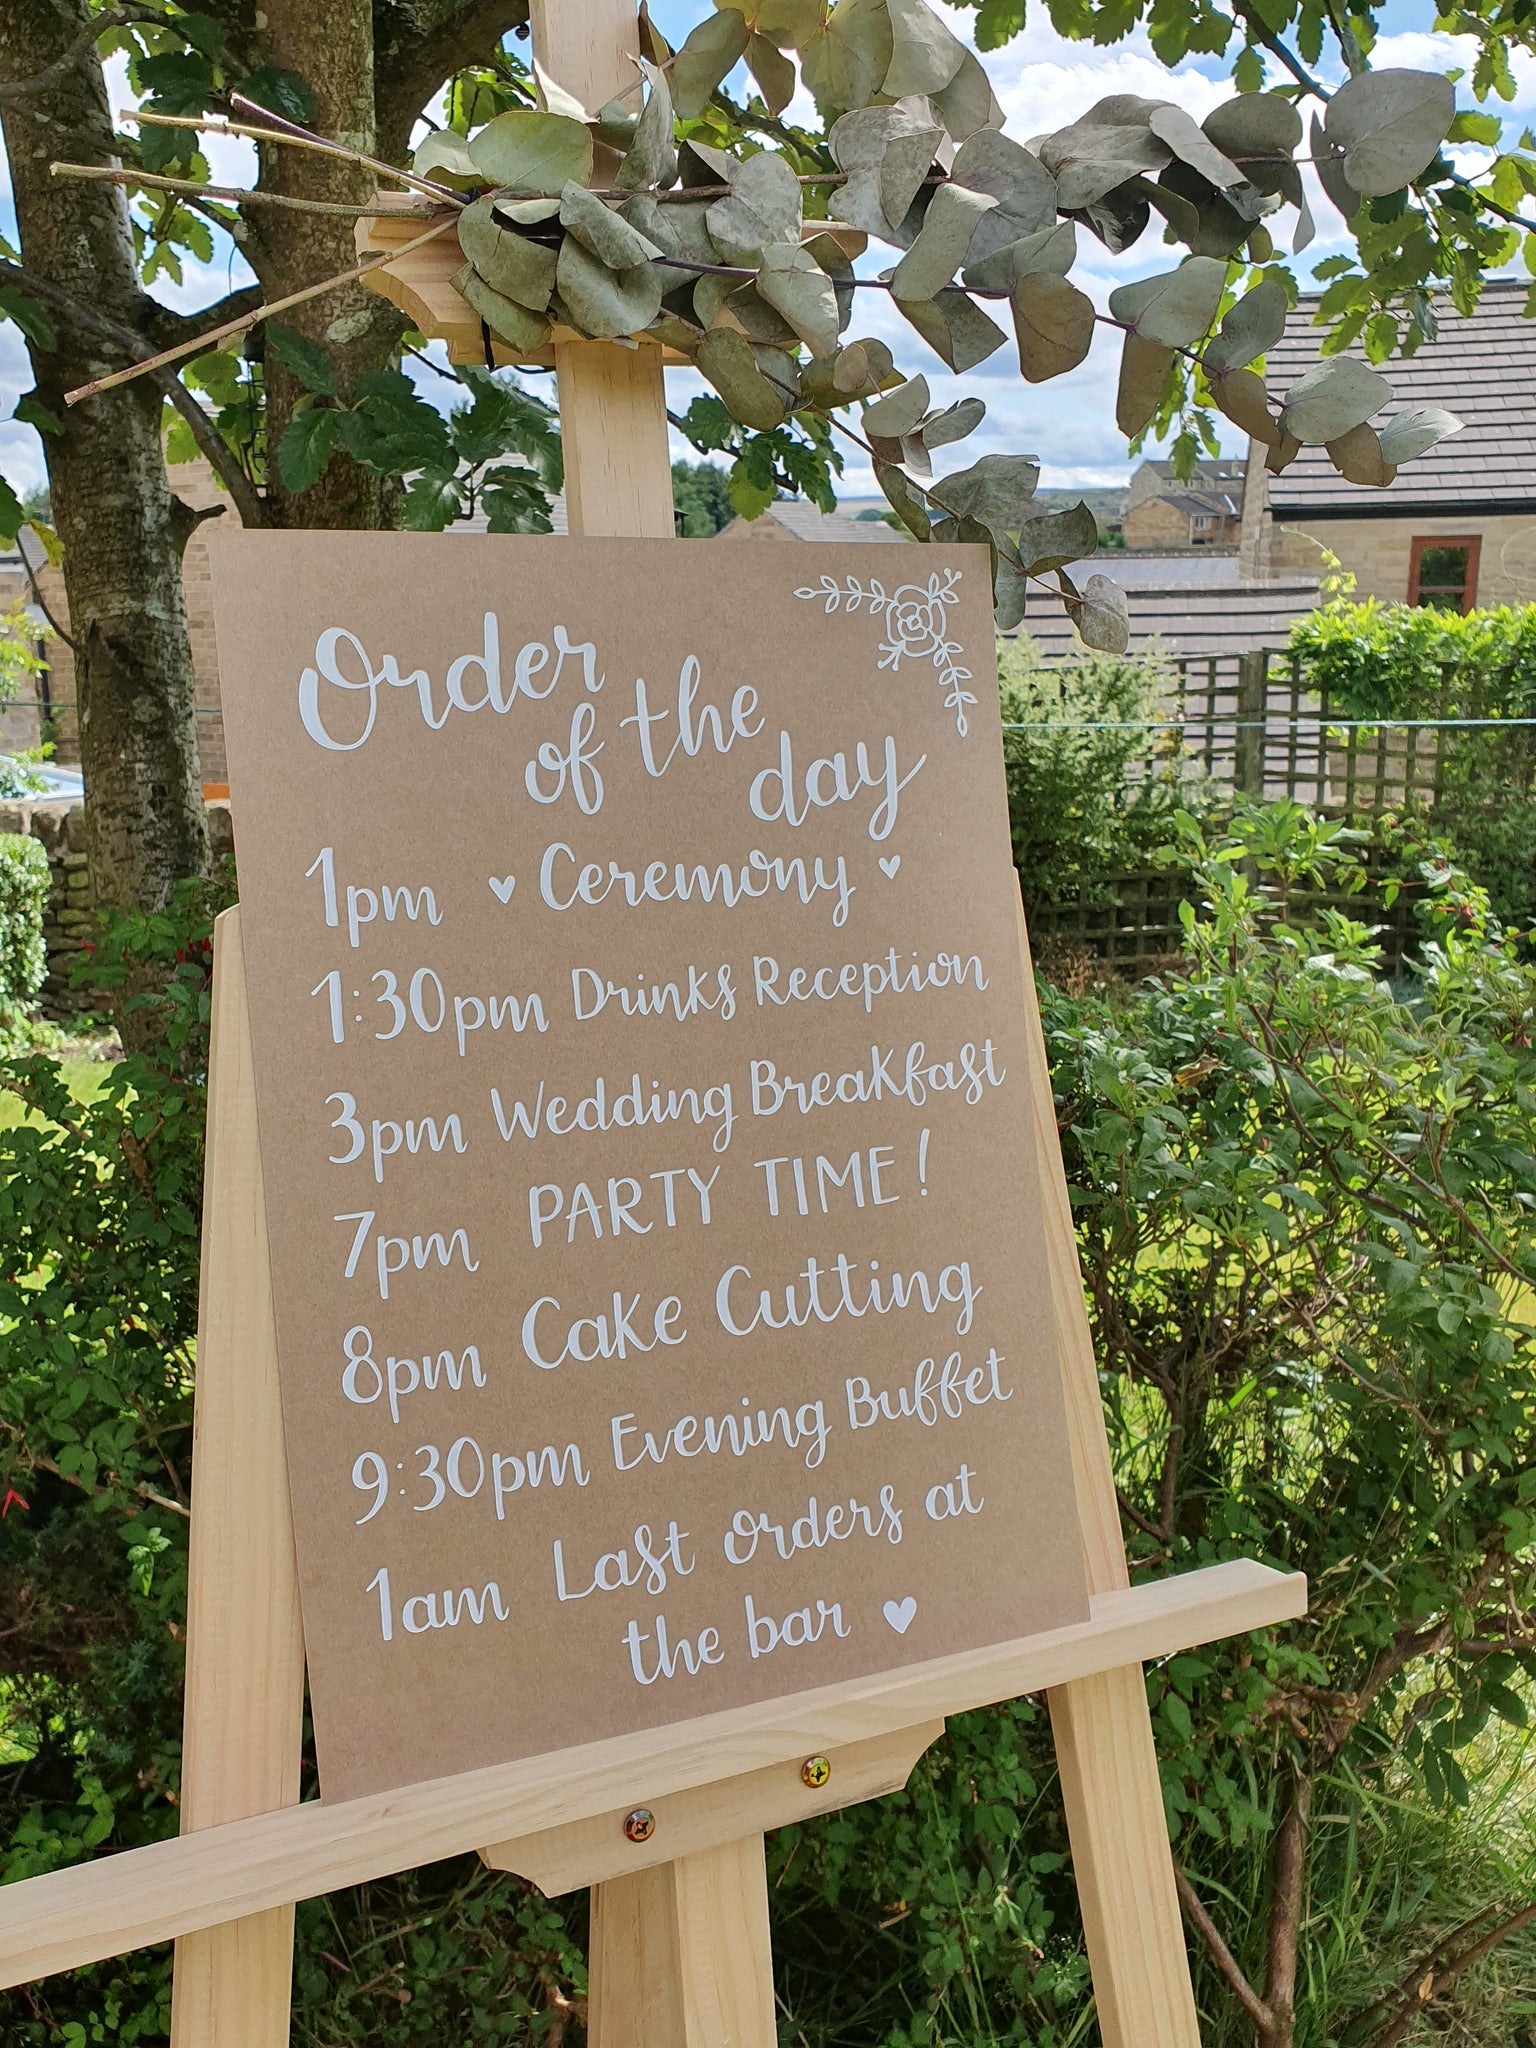 Order
of the
day
1pm ♥ Ceremony ♥
1:30pm Drinks Reception
3pm Wedding Breakfast
7pm PARTY TIME!
8pm Cake Cutting
9:30pm Evening Buffet
1am Last orders at
the bar ♥